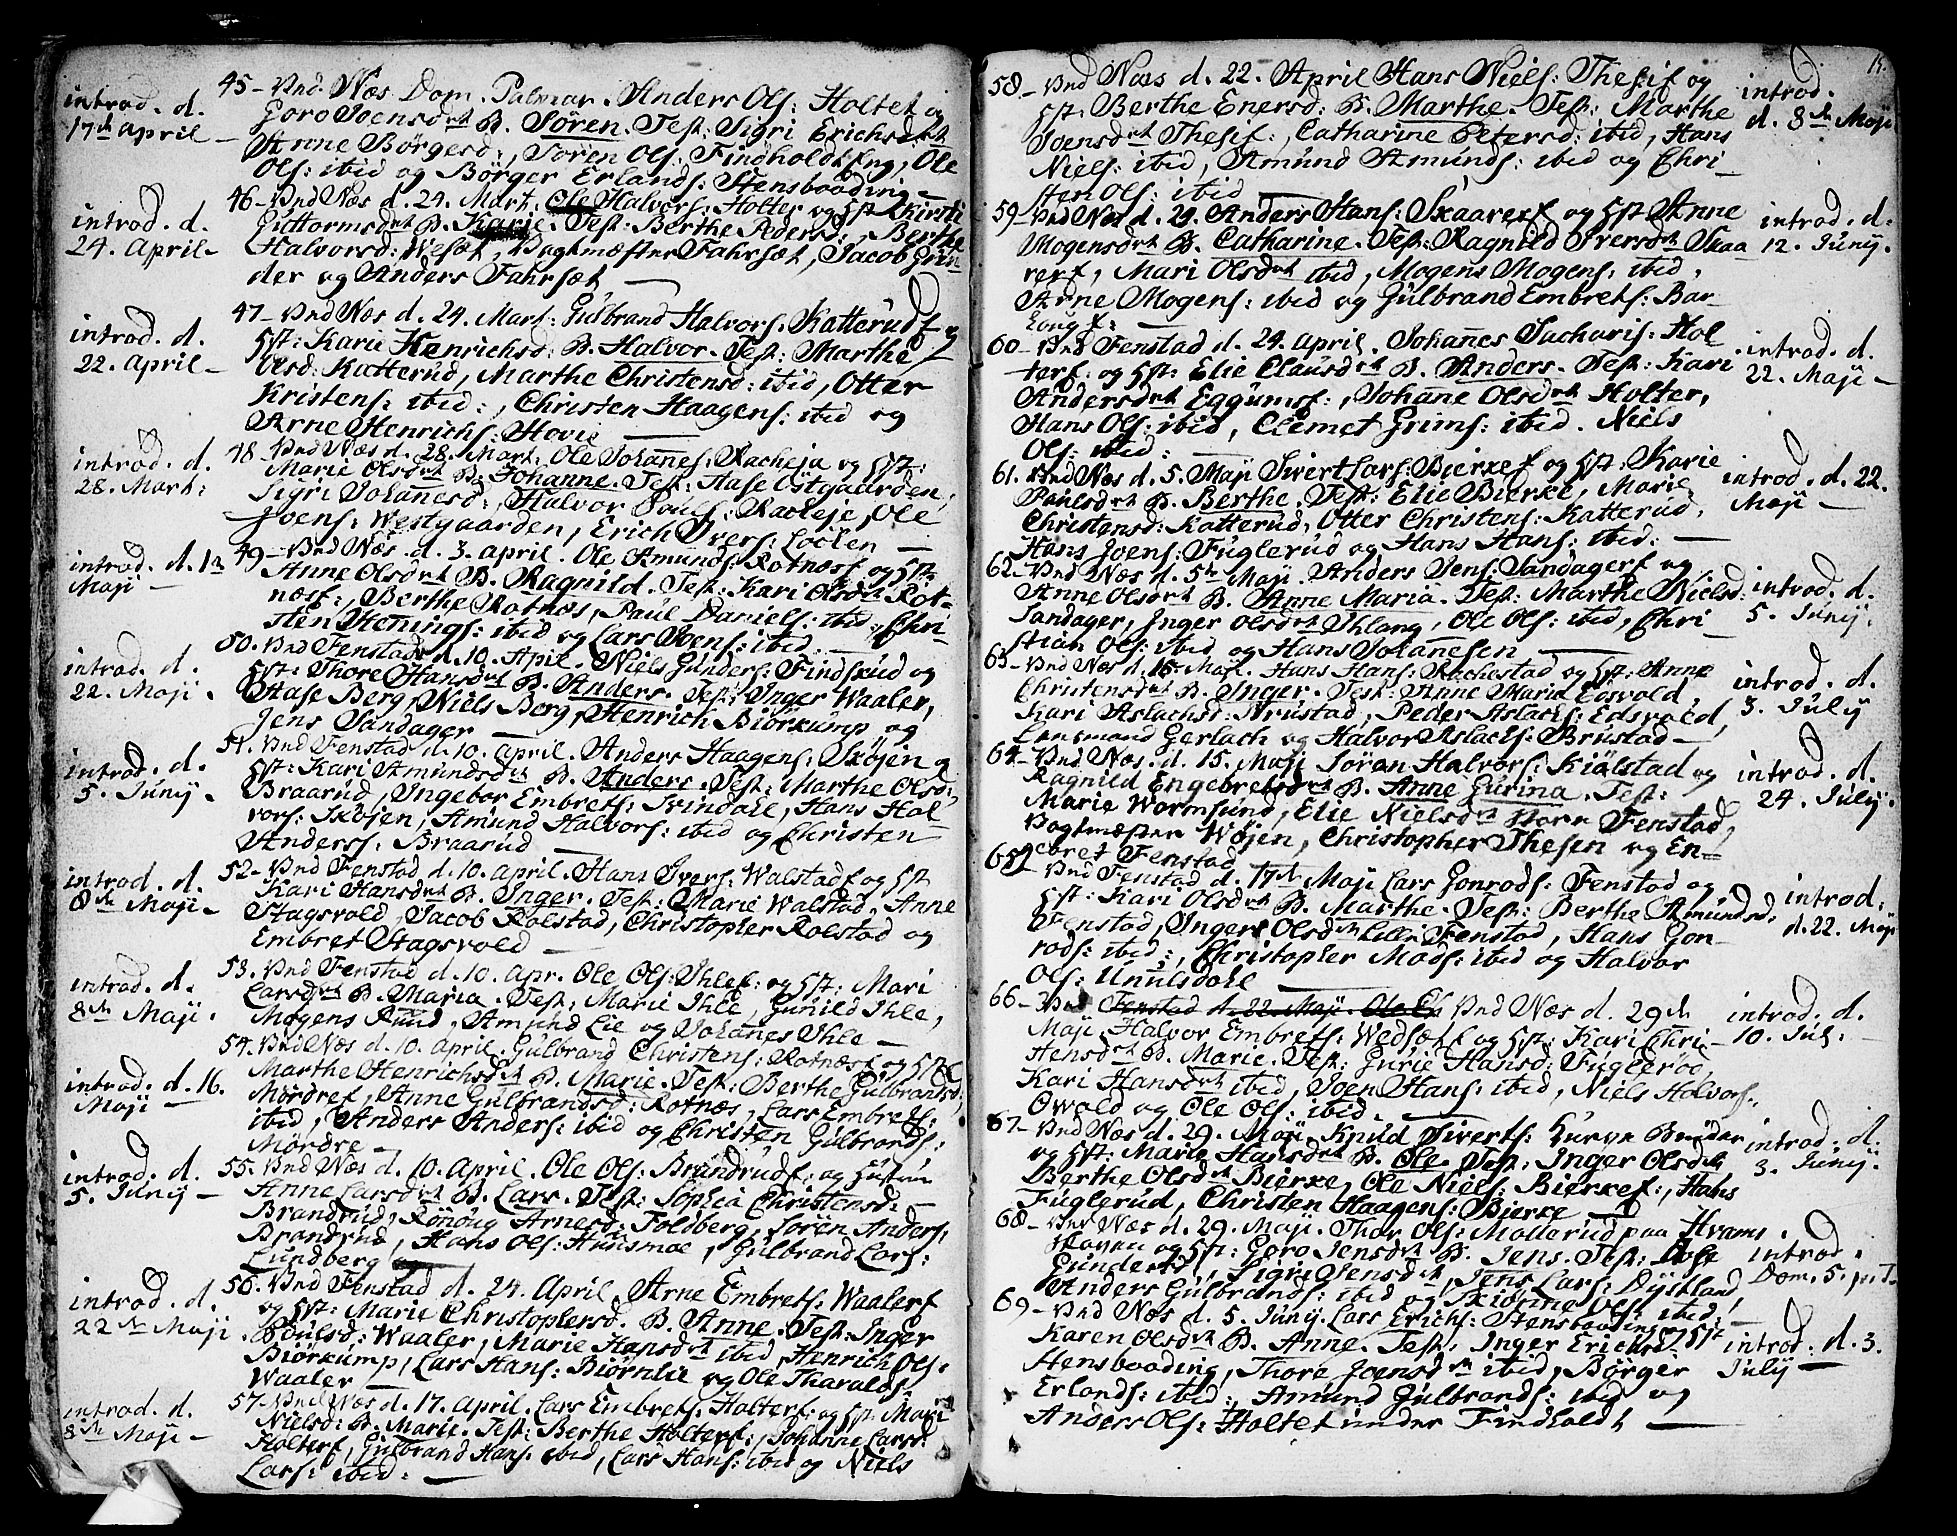 introd. d.
17de April –
45 – Vnd: Næs Dom. Palmar. Anders Ols: Holtef og
Goro Joensdtr B. Sören. Test: Sigri Erichsdtr
Anne Börgesd:, Sören Ols: Findholdt Eng, Ole
Ols: ibid og Börger Erlands: Stensbaading –
introd. d.
24. April –
46 – Vnd Næs d. 24. Mart. Ole Halvors: Holter og Hst: Kirsti
Guttormsdtr B. Karie. Test: Berthe Pedersd:, Berthe
Halvorsd: Vesæt, Vagtmæster Fahrsæt, Jacob Grin-
der og Anders Fahrsæt –
introd. d.
22. April –
47 – Vnd Næs d. 24. Mars: Gulbrand Halvors: Katterudf og
Hst: Karie Henrichsd: B. Halvor. Test: Marthe
Olsd: Katterud, Marthe Christensd: ibid, Otter
Kristens: ibid:, Christen Haagens: ibid og
Arne Henrichs: Hovie
introd. d.
28. Mart:
48 Vnd Næs d. 28. Mart: Ole Johannes: Racheja og Hst:
Marie Olsdtr B. Johanne. Test: Aase Ostgaarden,
Sigri Johanesd:, Halvor Pouls: Racleje, Ole
Joens: Westgaarden, Erich Ivers: Loeken –
introd. d. 12
Maji –
49 – Vnd Næs d. 3. April. Ole Amunds: Rotnæsf og Hst:
Anne Olsdtr B. Ragnild. Test: Kari Olsdtr Rot-
næsf:, Berthe Rotnæs, Paul Daniels: ibid:, Chri-
sten Hemings: ibid og Lars Joens: ibid.
introd. d.
22. Maji.
50. Vnd Fenstad d. 10. April. Niels Gunders: Findsrud og
Hst: Thore Hansdtr B. Anders. Test: Inger Waaler,
Aase Berg, Niels Berg, Henrich Biörkump, og
Jens Sandager –
introd. d.
5. Junij –
51. Vnd Fenstad d. 10. April. Anders Haagens: Skøjen og
Hst: Kari Amundsdtr B. Anders. Test: Marthe Olsd:
Braarud, Ingebor Embrets: Svindale, Hans Hal
vors: Skøjen, Amund Halvors: ibid og Christen
Anders: Braarud –
introd. d.
8de Maji –
52 – Vnd Fenstad d. 10. April. Hans Ivers: Walstadf og Hst
Kari Hansdtr B. Inger. Test: Marie Walstad, Anne
Stagsvold, Jacob Rolstad, Christopher Rolstad og
Embret Stagsvold –
introd. d.
8de Maji.
53. Vnd Fenstad d. 10. Apr. Ole Ols: Ihlef: og Hst: Mari
Larsdtr B. Maria. Test: Marie Ihle, Gunild Ihle,
Mogens Ruud, Amund Lie og Johanes Ihle –
introd. d. 16.
Maji –
54. Vnd Næs d. 10. April. Gulbrand Christens: Rotnæsf og Hst:
Marthe Henrichsdtr B. Marie. Test: Berthe Gulbrandsd:
Mordref, Anne Gulbrandsd: Rotnæs, Lars Embrets:
ibid, Anders Anders: ibid og Christen Gulbrands:
Mördre –
introd. d.
5. Junij –
55 – Vnd Næs d. 10. April. Ole Ols: Brandrudf: og Hustru
Anne Larsdtr B. Lars. Test: Sophia Christensd: –
Brandrud, Rönoug Arnesd: Foldberg, Sören Anders:
Brandrud, Hans Ols: Huusmoe, Gulbrand Lars:
Lundberg
introd. d.
22de Maji.
56. Vnd Fenstad d. 24. April. Arne Embrets: Waalerf
og Hst: Marie Christophersd. B. Anne. Test: Inger
Poulsd: Waaler, Marie Hansdtr ibid, Henrich Ols:
Biörkump, Lars Hans: Biörnlie og Ole Tharalds:
Waaler –
introd. d.
8de Maji –
57. Vnd Næs d. 17. April. Lars Embrets: Holterf: og Hst: Mari
Nielsd: B. Marie. Test: Berthe Holterf:, Johanne Larsd:
Holterf, Gulbrand Hans: ibid, Lars Hans: ibid og Niels
Lars: ibid: –
58. – Vnd Næs d. 22. April Hans Niels: Thesif og
Hst: Berthe Enersd: B. Marthe. Test: Marthe
Joensdtr Thesif:, Catharine Petersd: ibid, Hans
Niels: ibid, Amund Amunds: ibid og Chri –
sten Ols: ibid
introd.
d. 8de Maji
59 – Vnd Næs d. 24. Anders Hans: Skaareref og Hst Anne
Mogensdtr B. Catharine. Test: Ragnild Iversdtr Skaa
rerf, Mari Olsdtr ibid, Mogens Mogens: ibid,
Arne Mogens: ibid og Gulbrand Embrets: Bar-
introd. d.
12. Junij.
60 – Vnd Fenstad d. 24. April. Johannes Sacharis: Hol
terf: og Hst: Elie Clausdtr B. Anders. Test: Kari
Andersdtr Eggumsf:, Johane Olsdtr Holter,
Hans Ols: ibid, Clemet Grims: ibid. Niels
Ols: ibid: –
introd. d.
22. Maji –
61. Vnd Næs d. 5. Maji Sivert Lars: Bierkef og Hst: Karie
Paulsdtr B. Berthe. Test: Elie Bierke, Marie
Christensd: Katterud, Otter Christens: Katterud,
Hans Joens: Fuglerud og Hans Hans: ibid: –
introd. d. 22.
Maji –
62 – Vnd Næs d. 5te Maji. Anders Jens: Sandagerf og
Anne Olsdtr B. Anne Maria. Test: Marthe Nielsd:
Sandager, Inger Olsdtr Ihlang, Ole Ols: ibid, Chri –
stian Ols: ibid og Hans Johanesen –
introd. d.
5. Junij.
63 – Vnd Næs d. 15. Maji. Hans Hans: Rachestad og Hst: Anne
Christensdtr B. Inger. Test: Anne Maria Edsvold,
Kari Aslachsd: Brustad, Peder Aslachs: Edsvold,
Lensmand Gerlach og Halvor Aslachs: Brustad –
introd. d.
3. July
64 – Vnd Næs. d. 15. Maji Søren Halvors: Kiölstad og
Ragnild Engebretsdtr B. Anne Gurina. Test:
Marie Wormsund, Elie Nielsdtr Horn Fenstad,
Vagtmæster Wøjen, Christopher Thesen og En-
ebret Fenstad
introd. d.
24. July.
65 – Vnd Fenstad d. 17de Maji Lars Gonrods: Fenstad og
Hst: Kari Olsdtr B. Marthe. Test: Berthe Amundsd,
Fenstad, Inger Olsdtr Lille Fenstad, Hans Gon-
rods: ibid:, Christopher Mads: ibid og Halvor
Ols: Unulsdale
introd:
d. 22. Maji
66 – Vnd Fenstad d. 22. Maji. Ole Ols Vnd Næs d. 29de
Maji. Halvor Embrets: Wedsætf og Hst: Kari Chri –
stensdtr B. Marie. Test: Gurie Hansd: Fuglerød,
Kari Hansdtr ibid, Joen Hans: ibid, Niels Halvors:
Owald og Ole Ols: ibid.
introd. d.
10. Jul:
67 – Vnd Næs d. 29. Maji. Knud Siverts: Hurva Brødær
og Hst: Marie Hansdtr B. Ole. Test: Inger Olsdtr
Berthe Olsdtr Bierke, Ole Niels: Bierkef:, Hans
Fuglerud, Christen Haagens: Bierke –
introd. d.
3. Junij.
68 – Vnd Næs d. 29. Maji. Thor Ols: Mollerud paa Hvams
skoven og Hst: Goro Jensdtr B. Jens. Test: Aase
Gundersd:, Sigri Jensdtr, Jens Lars: Dystland,
Anders Gulbrands: ibid og Skiönne Ols: ibid:
introd.
Dom. 5. p. T.
69 – Vnd Næs d. 5. Junij. Lars Erichs: Stensbaading og Hst
Karen Olsdtr B. Anne. Test: Inger Erichsd
Stensbaading, Thore Joensdtr ibid, Börger
Erlands: ibid: Amund Gulbrands: ibid og
Anders Ols: Holtet under Findholdt –
introd. d. 3.
July –